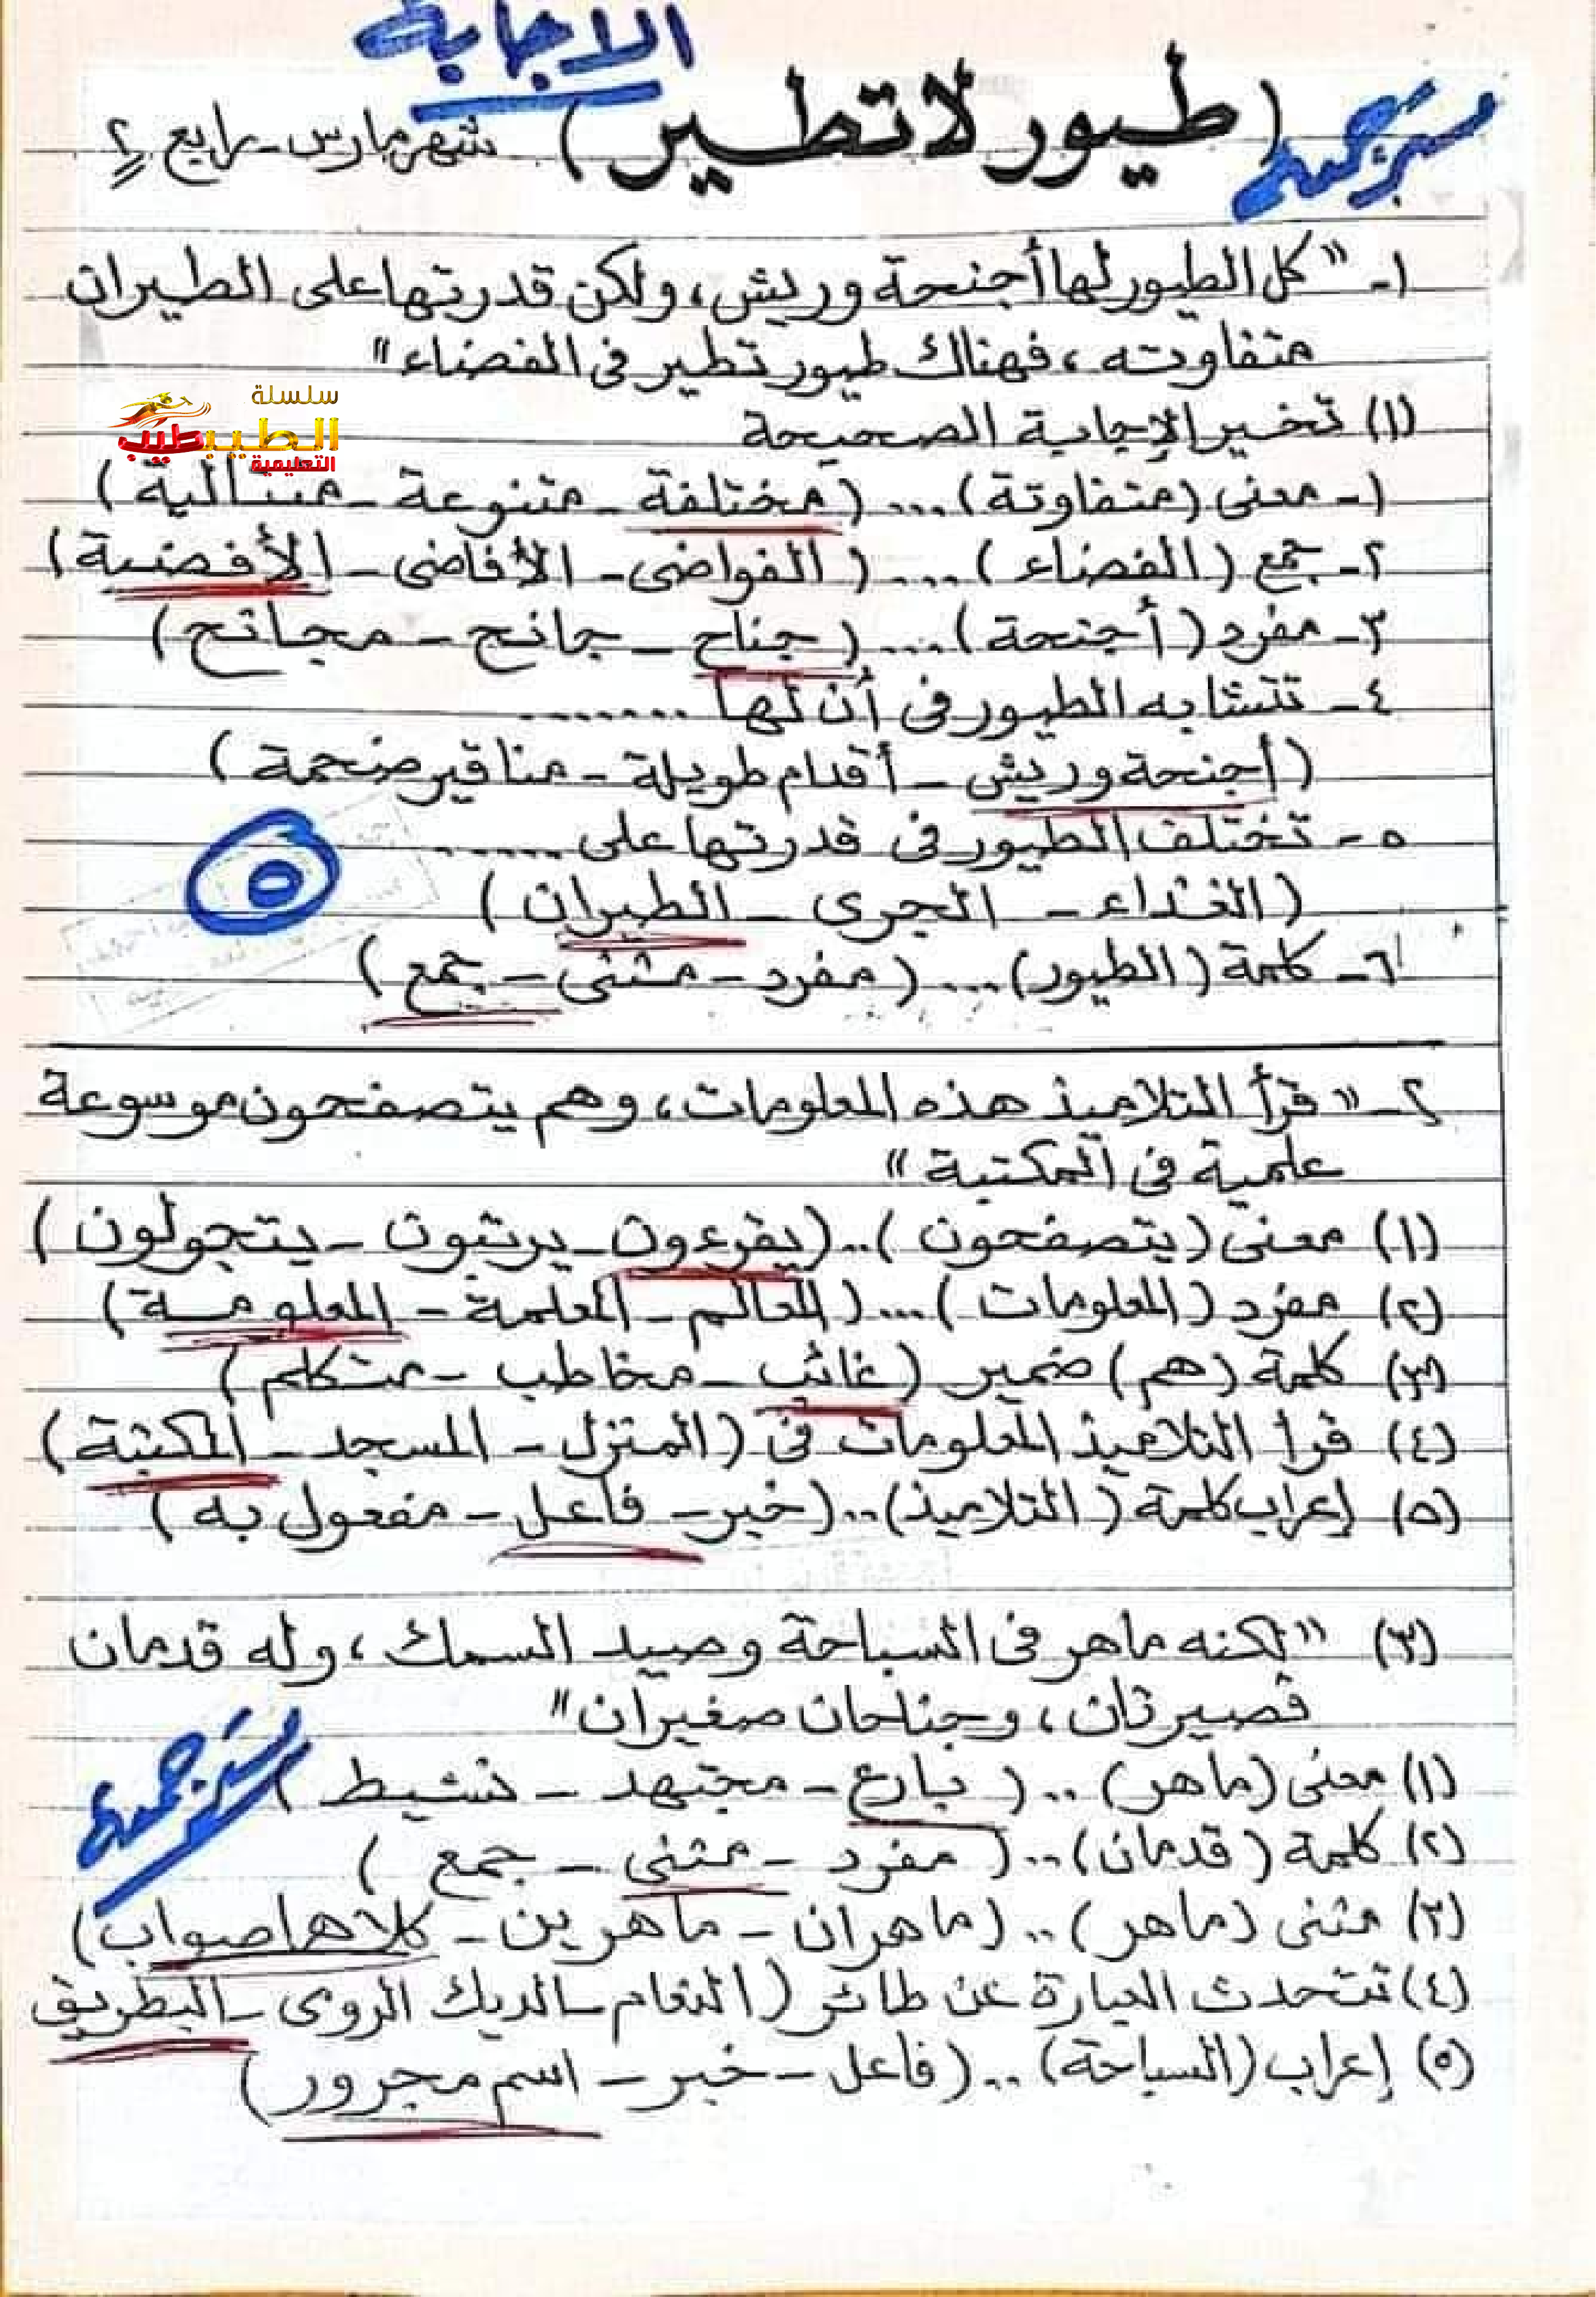 الاجابة
(طيور لا تطير) شهر مارس - رابع ٢
١- "كل الطيور لها أجنحة وريش، ولكن قدرتها على الطيران
متفاوته، فهناك طيور تطير فى الفضاء"
سلسلة
الطيبطيب
التعليمية
(١) تخير الإجابة الصحيحة
١- معنى (متفاوتة) .... (مختلفة - متنوعة - متتالية)
٢- جمع (الفضاء) .... (الفواضى - الأفاضى - الأفضية)
٣- مفرد (أجنحة) .... (جناح - جانح - مجانح)
٤- تتشابه الطيور فى أن لها ........
(أجنحة وريش - أقدام طويلة - مناقير ضخمة)
٥- تختلف الطيور فى قدرتها على ......
(الغذاء - الجرى - الطيران)
٥
٦- كلمة (الطيور) .... (مفرد - مثنى - جمع)
٢- "قرأ التلاميذ هذه المعلومات، وهم يتصفحون موسوعة
علمية فى المكتبة"
(١) معنى (يتصفحون) .. (يقرءون - يرتبون - يتجولون)
(٢) مفرد (المعلومات) .... (المعالم - المعلمة - المعلومة)
(٣) كلمة (هم) ضمير (غائب - مخاطب - متكلم)
(٤) قرأ التلاميذ المعلومات فى (المنزل - المسجد - المكتبة)
(٥) إعراب كلمة (التلاميذ) .. (خبر - فاعل - مفعول به)
(٣) "لكنه ماهر فى السباحة وصيد السمك، وله قدمان
قصيرتان، وجناحان صغيران"
(١) معنى (ماهر) .. (بارع - مجتهد - نشيط)
(٢) كلمة (قدمان) .. (مفرد - مثنى - جمع)
(٣) مثنى (ماهر) .. (ماهران - ماهرين - كلاهما صواب)
(٤) تتحدث العبارة عن طائر (النعام - الديك الرومى - البطريق
(٥) إعراب (السباحة) .. (فاعل - خبر - اسم مجرور)